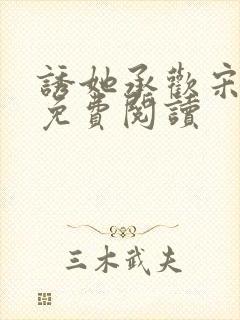 誘她承歡宋
免費閱讀
三木武夫